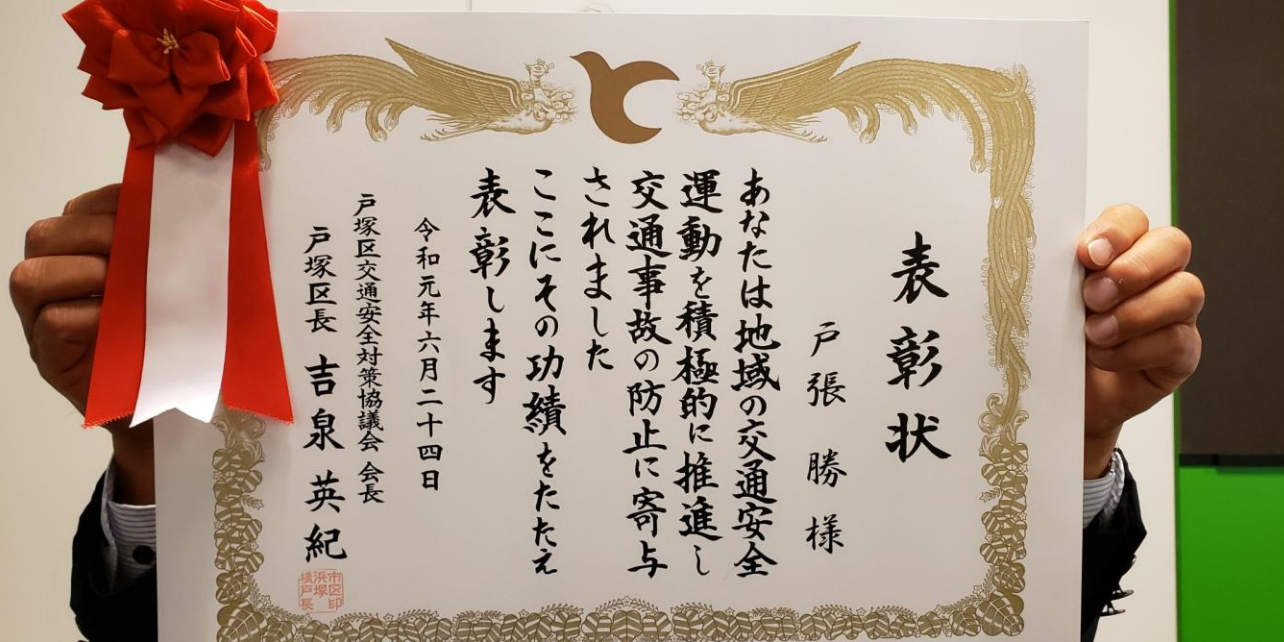 表彰状
戸張 勝 様
あなたは地域の交通安全
運動を積極的に推進し
交通事故の防止に寄与
されました
ここにその功績をたたえ
表彰します
令和元年六月二十四日
戸塚区交通安全対策協議会 会長
戸塚区長 吉泉 英紀
市区印
浜塚
横戸長